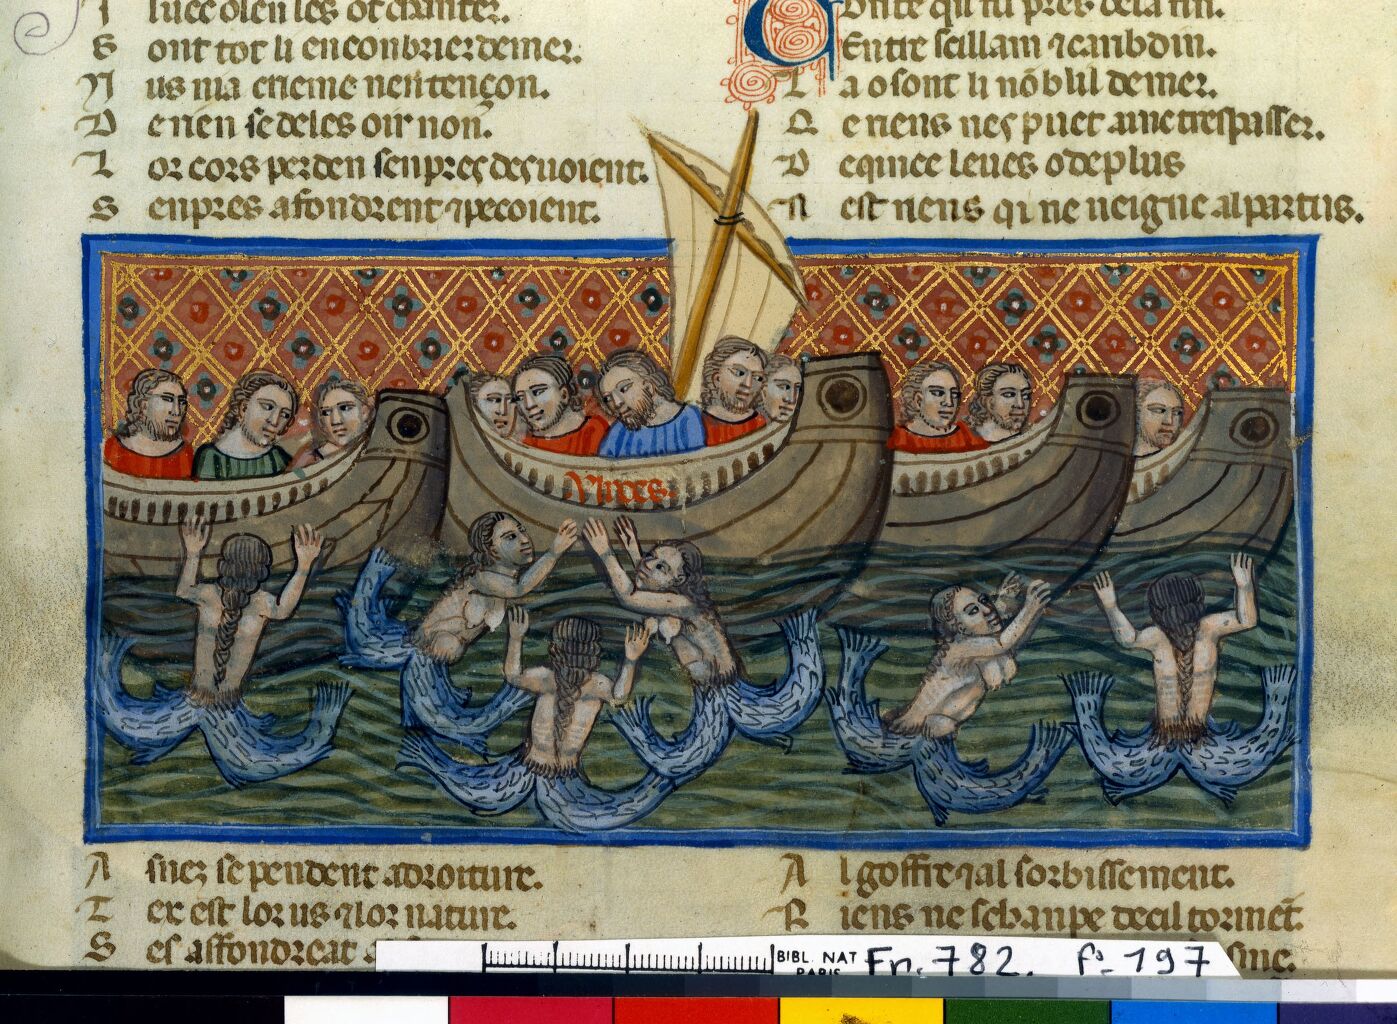 ont tot li enconbrier demer.
us ma en eme nen tençon.
e nen se de les oir non.
or cors perden senpres desvoient.
S enpres afondrent ⁊ pecoient.
Entre scillam ⁊ caribdin.
L a o sont li nõblil de mer.
Q e riens nes puet aine trespasser.
D e quince leues o de plus
N est riens qi ne veigne al partus.
Vlixes.
A suez se pendent a droiture.
T ex est lor us ⁊ lor nature.
S es affondreat
A l goffre ⁊ al sorbissement.
R iens ne sch anpe decil tormẽt.
BIBL. NAT
PARIS
Fr. 782. fº 197